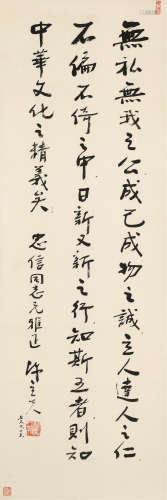 無私無我之公成己成物之誠立人達人之仁
不偏不倚之中日新又新之行知斯五者則知
中華文化之精義矣
忠信同志元雅正 陳立夫